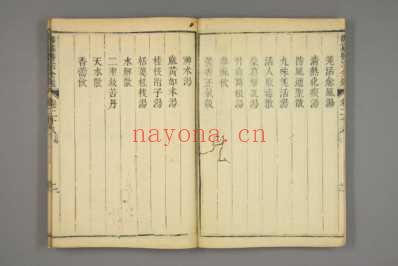 羌活愈風湯
清熱化痰湯
防風通聖散
九味羌活湯
活人敗毒散
升麻葛根湯
參蘇飲
藿香正氣散
神朮湯
麻黃加朮湯
桂枝梔子湯
栝蔞桂枝湯
水解散
二聖救苦丹
天水散
香薷飲
nayona.cn.com